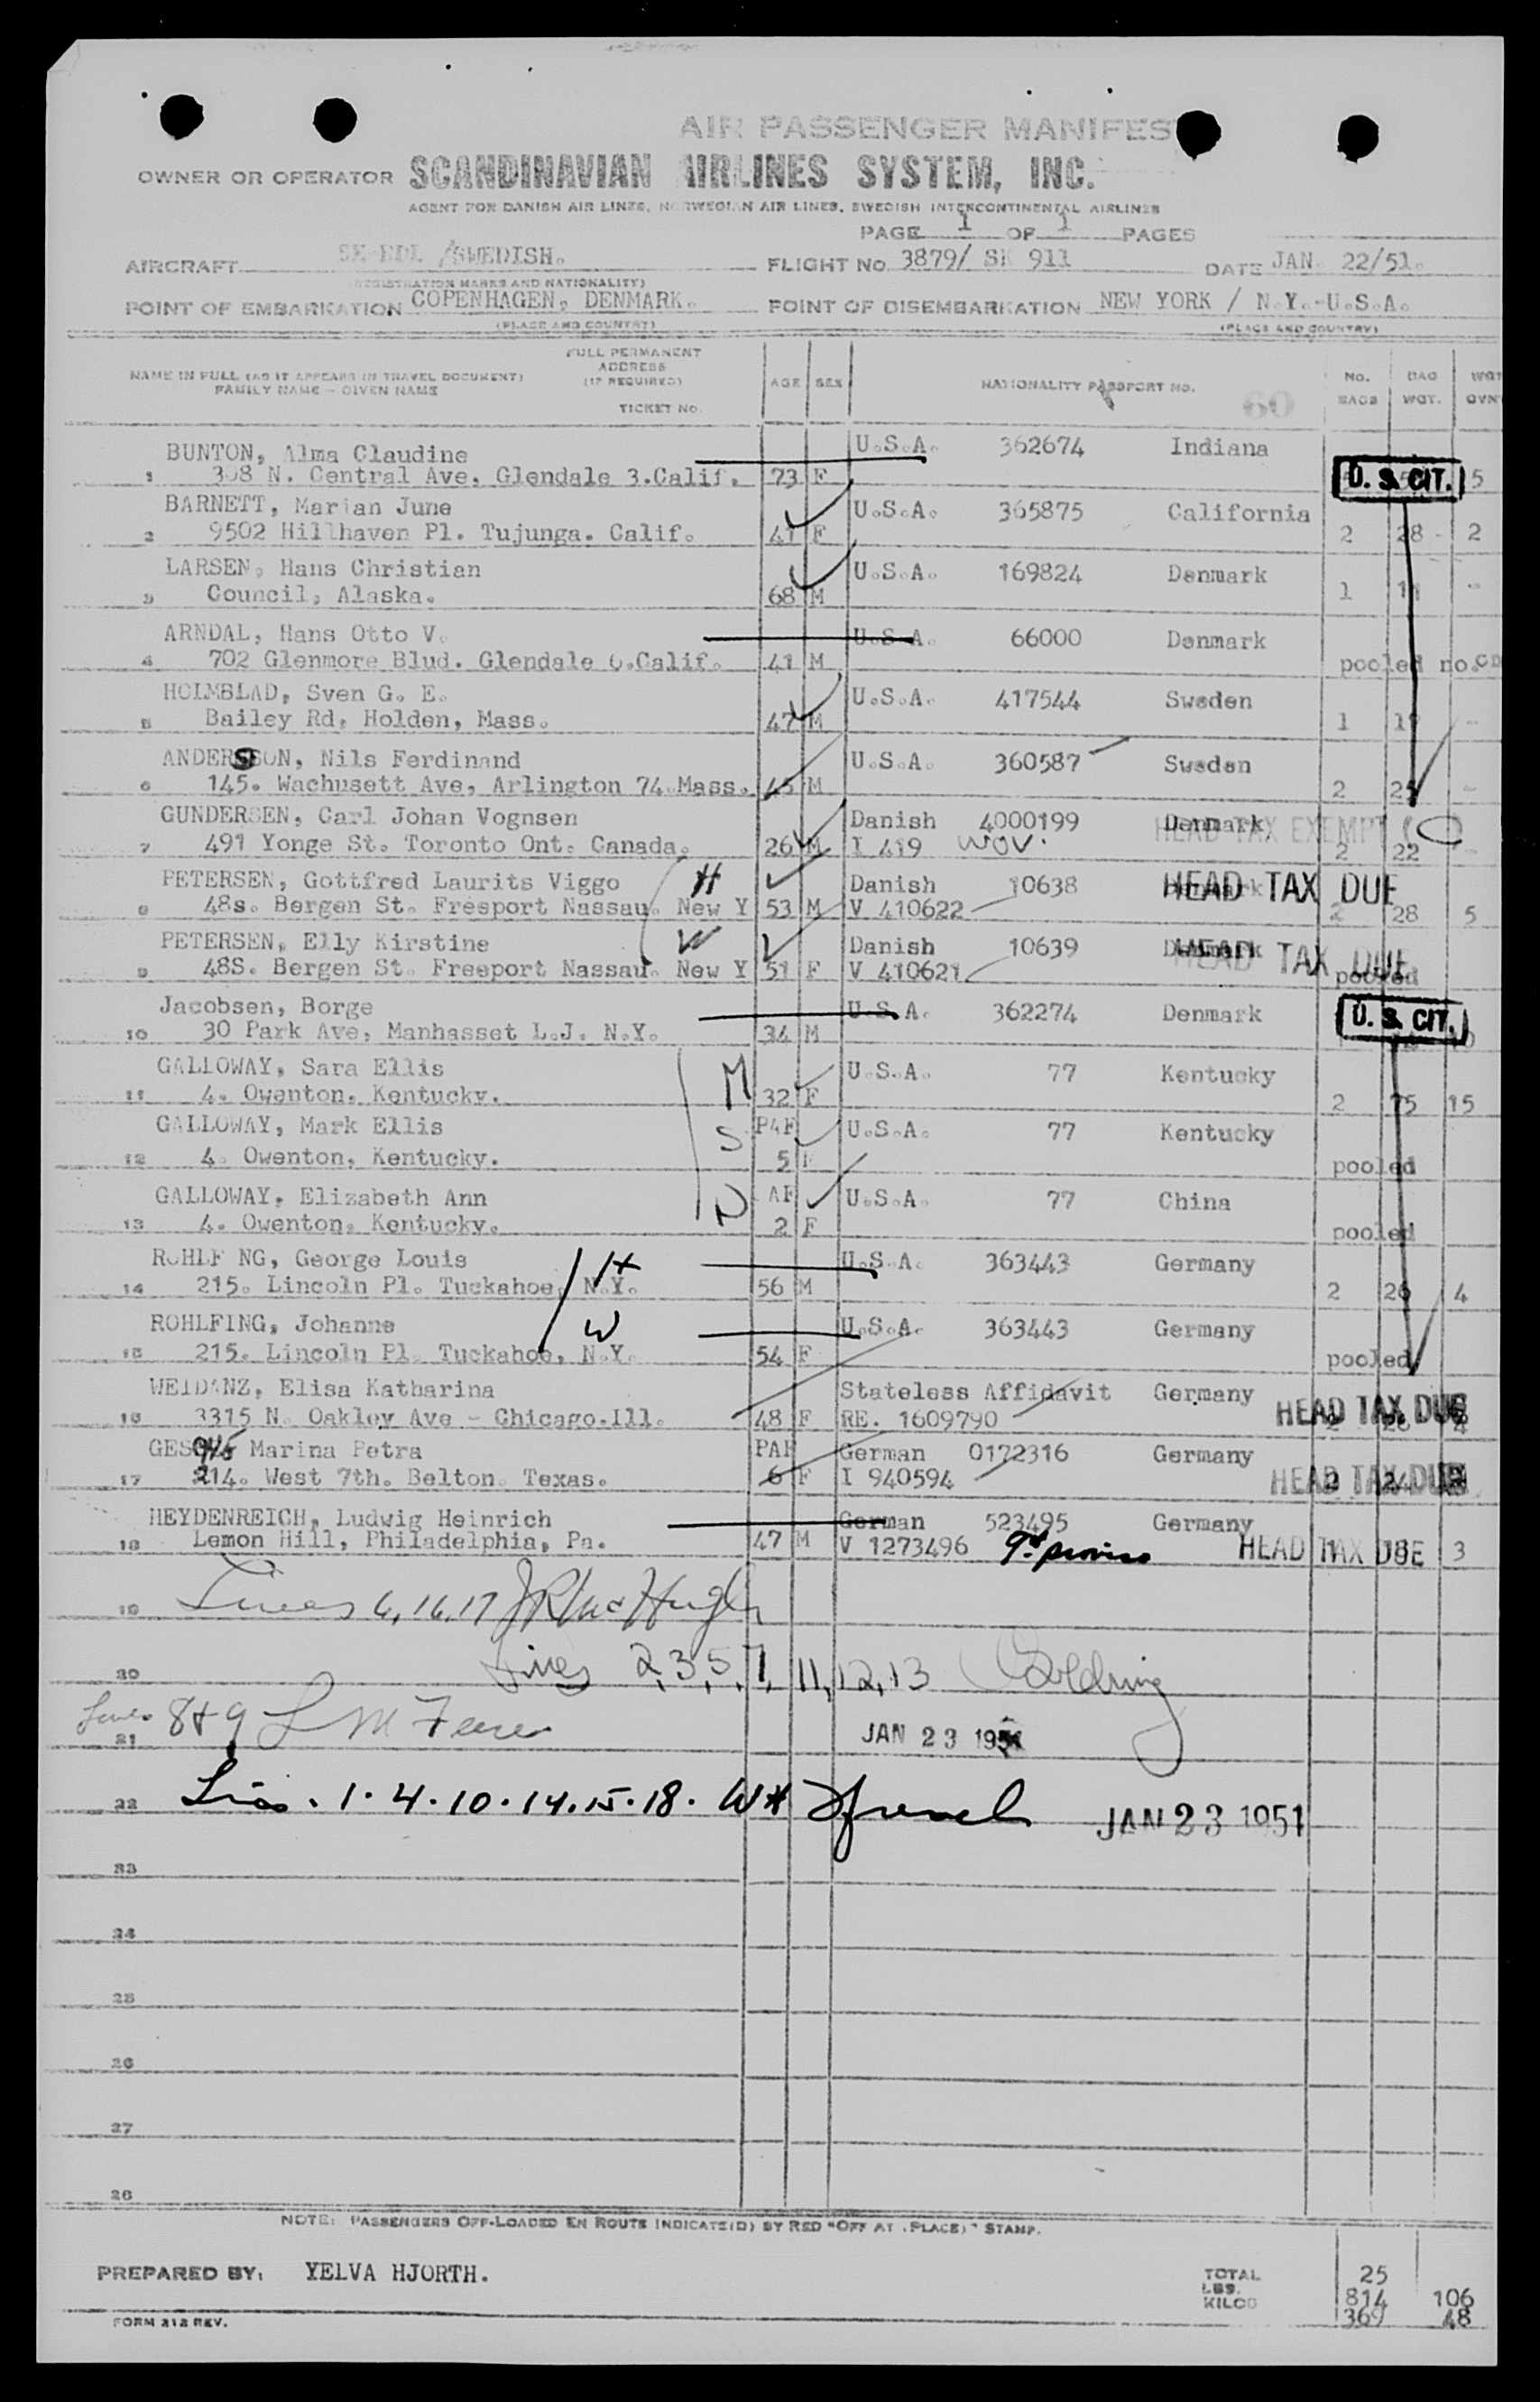 AIR PASSENGER MANIFES
OWNER OR OPERATOR SCANDINAVIAN AIRLINES SYSTEM, INC.
AGENT FOR DANISH AIR LINES, NORWEGIAN AIR LINES, SWEDISH INTERCONTINENTAL AIRLINES
PAGE 1 OF 1 PAGES
AIRCRAFT /SWEDISH. FLIGHT No 3879/ SK 911 DATE JAN. 22/51.
(REGISTRATION MARKS AND NATIONALITY)
POINT OF EMBARKATION COPENHAGEN, DENMARK. POINT OF DISEMBARKATION NEW YORK / N.Y.-U.S.A.
(PLACE AND COUNTRY) (PLACE AND COUNTRY)
NAME IN FULL (AS IT APPEARS IN TRAVEL DOCUMENT) FAMILY NAME - GIVEN NAME
FULL PERMANENT ADDRESS (IF REQUIRED) TICKET No. AGE SEX NATIONALITY PASSPORT NO. 60 No. BAGS BAG WGT. WGT OVN
BUNTON, Alma Claudine U.S.A. 362674 Indiana
1 308 N. Central Ave. Glendale 3.Calif. 73 F U. S. CIT. 5
BARNETT, Marian June U.S.A. 365875 California
2 9502 Hillhaven Pl. Tujunga. Calif. 41 F 2 28 - 2
LARSEN, Hans Christian U.S.A. 169824 Denmark
3 Council, Alaska. 68 M 1 11 -
ARNDAL, Hans Otto V. U.S.A. 66000 Denmark
4 702 Glenmore Blud. Glendale 6.Calif. 41 M pooled no.
HOLMBLAD, Sven G. E. U.S.A. 417544 Sweden
5 Bailey Rd, Holden, Mass. 47 M 1 -
ANDERSSON, Nils Ferdinand U.S.A. 360587 Sweden
6 145. Wachusett Ave, Arlington 74.Mass. 45 M 2 -
GUNDERSEN, Carl Johan Vognsen Danish 4000199 Denmark HEAD TAX EXEMPT (C)
7 491 Yonge St. Toronto Ont. Canada. 26 M I 419 WOV. 2 22 -
PETERSEN, Gottfred Laurits Viggo H Danish 10638 Denmark HEAD TAX DUE
8 48s. Bergen St. Freeport Nassau. New Y 53 M V 410622 2 28 5
PETERSEN, Elly Kirstine W Danish 10639 Denmark HEAD TAX DUE
9 48S. Bergen St. Freeport Nassau. New Y 51 F V 410621 pooled
Jacobsen, Borge U.S.A. 362274 Denmark U. S. CIT.
10 30 Park Ave, Manhasset L.J. N.Y. 34 M
GALLOWAY, Sara Ellis M U.S.A. 77 Kentucky
11 4. Owenton, Kentucky. 32 F 2 75 15
GALLOWAY, Mark Ellis S U.S.A. 77 Kentucky
12 4. Owenton, Kentucky. 5 pooled
GALLOWAY, Elizabeth Ann U.S.A. 77 China
13 4. Owenton, Kentucky. 2 F pooled
ROHLF NG, George Louis H U.S.A. 363443 Germany
14 215. Lincoln Pl. Tuckahoe, N.Y. 56 M 2 26 4
ROHLFING, Johanne W U.S.A. 363443 Germany
15 215. Lincoln Pl. Tuckahoe, N.Y. 54 F pooled
WEIDANZ, Elisa Katharina Stateless Affidavit Germany
16 3315 N. Oakley Ave - Chicago.Ill. 48 F RE. 1609790 HEAD TAX DUE
Marina Petra German 0172316 Germany
17 214. West 7th. Belton. Texas. 6 F I 940594 HEAD TAX DUE
HEYDENREICH, Ludwig Heinrich German 523495 Germany
18 Lemon Hill, Philadelphia, Pa. 47 M V 1273496 9th proviso HEAD TAX DUE 3
19 Lines 6, 16, 17 J R McHugh
20 Lines 2, 3, 5, 7, 11, 12, 13 Goldring
21 Lines 8 & 9 L M JAN 23 1951
22 Lines. 1. 4. 10. 14. 15. 18. JAN 23 1951
23
24
25
26
27
28
NOTE: PASSENGERS OFF-LOADED EN ROUTE INDICATE(D) BY RED "OFF AT (PLACE)" STAMP.
PREPARED BY: YELVA HJORTH.
TOTAL 25
LBS. 814 106
KILOS 369 48
FORM 212 REV.